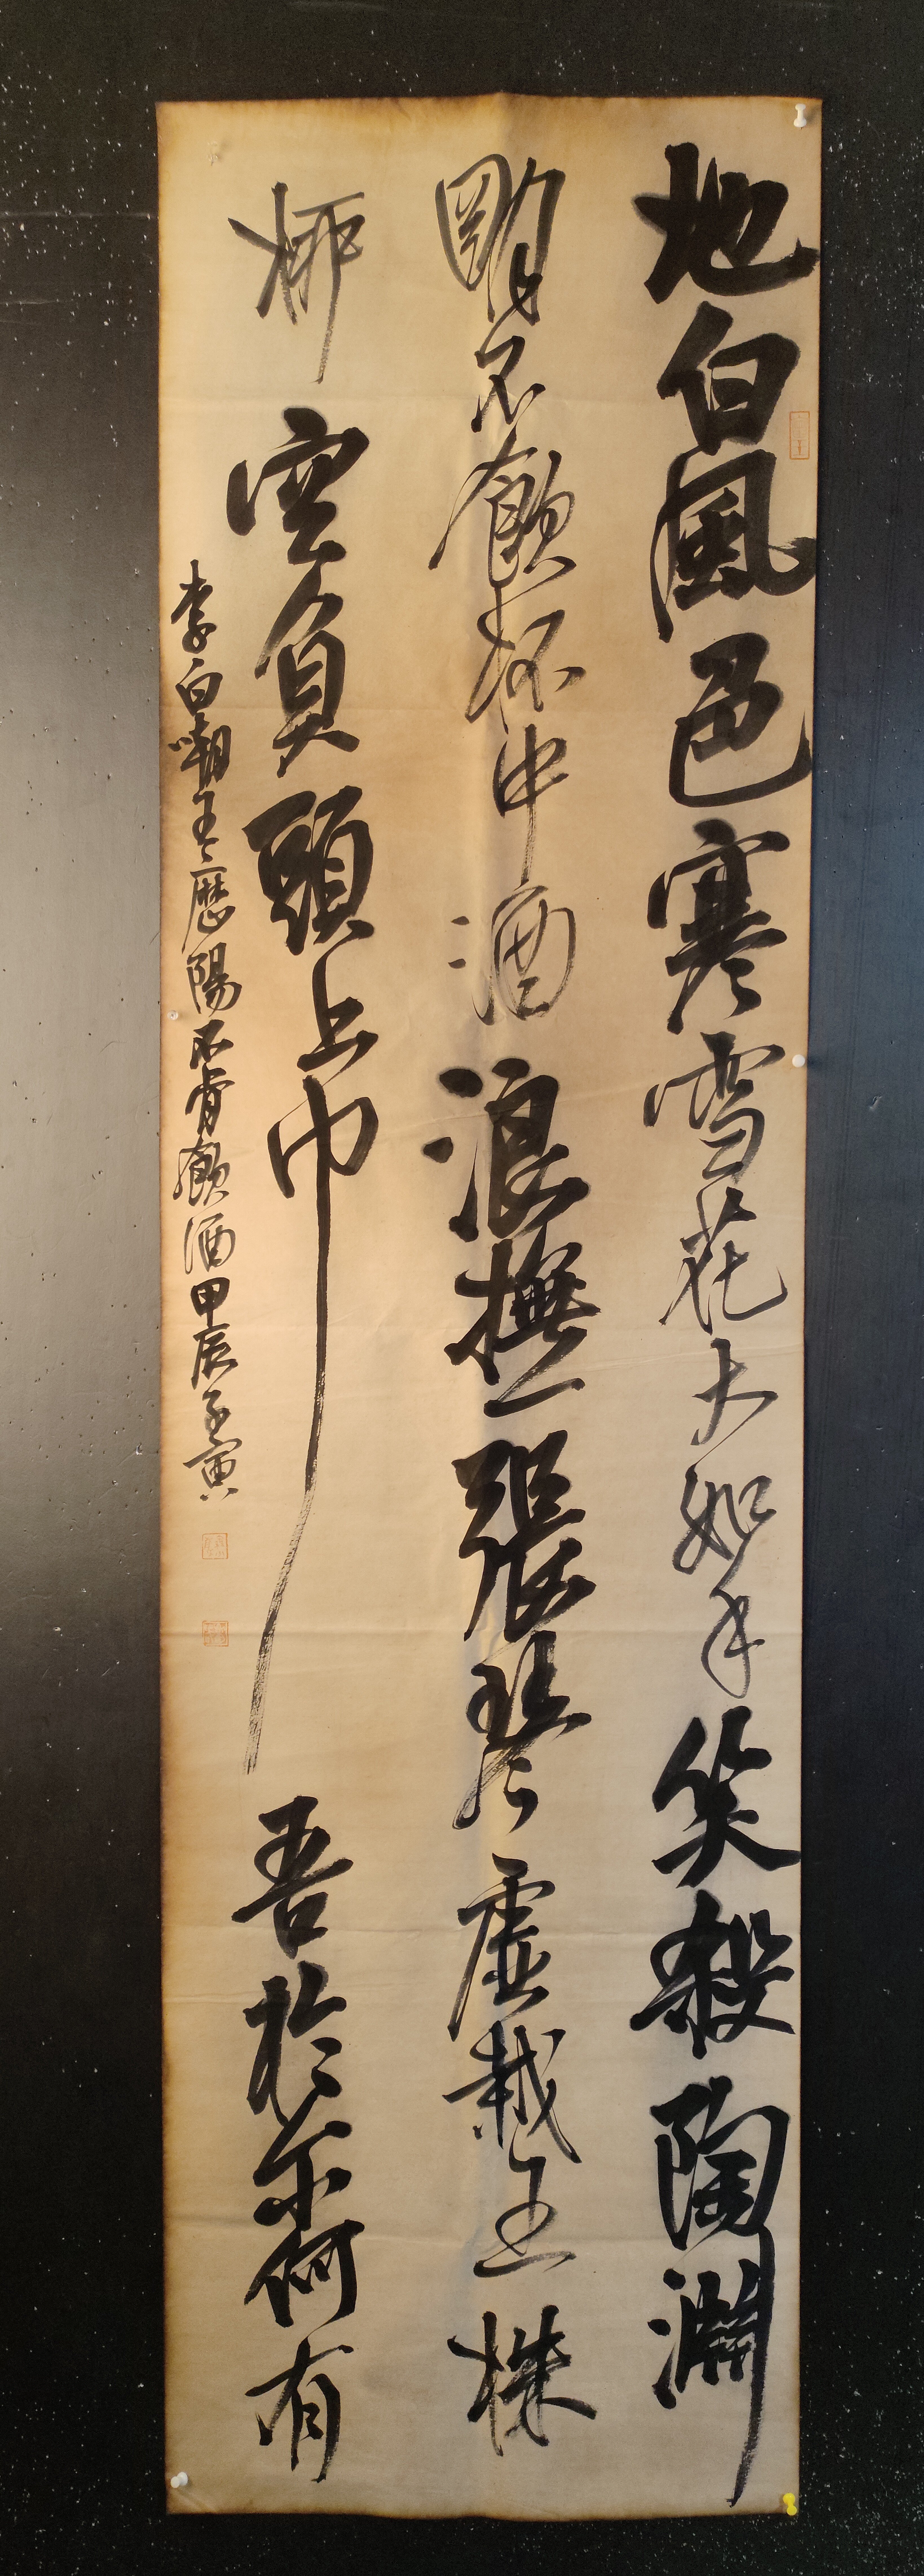 地白風色寒雪花大如手笑殺陶淵
明不飲杯中酒浪撫一張琴虛栽五株
柳空負頭上巾吾於尔何有
李白嘲王歷陽不肯飲酒甲辰子寅